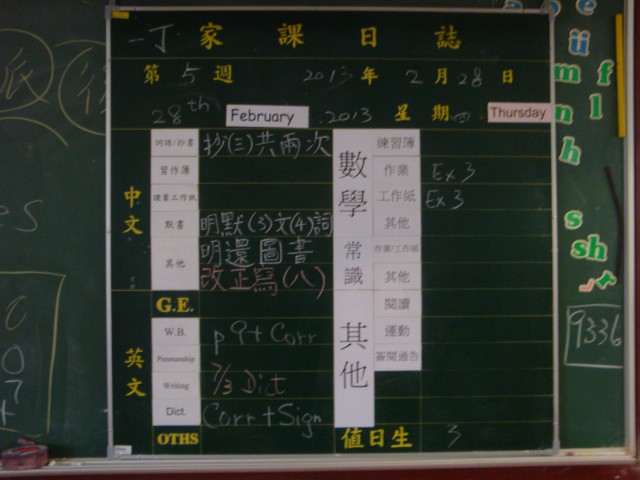 一丁 家課日誌
第 5 週 2013 年 2 月 28 日
28th February 2013 星期 四 Thursday
中文
詞語/抄書 抄(三)共兩次
習作簿
課業工作紙
默書 明默(3)文(4)詞
其他 明還圖書
改正寫(八)
英文
G.E.
W.B. p 9 + Corr
Penmanship
Writing 7/3 Dict
Dict. Corr + Sign
OTHS
數學
練習簿
作業 Ex 3
工作紙 Ex 3
其他
常識
作業/工作紙
其他
其他
閱讀
運動
簽閱通告
值日生 3
9336
e
ü
m f
n l
h
s
sh